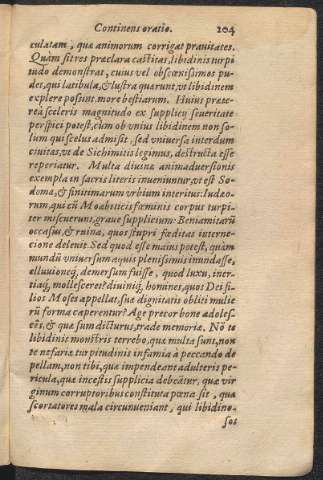 Continens oratio. 204
culatam, quæ animorum corrigat prauitates.
Quàm sit res præclara castitas, libidinis turpi
tudo demonstrat, cuius vel obscœnissimos pu-
det, qui latibula, & lustra quærunt, vt libidinem
explere possint more bestiarum. Huius præte-
reà sceleris magnitudo ex supplicij seueritate
perspici potest, cùm ob vnius libidinem non so-
lum qui scelus admisit, sed vniuersa interdum
ciuitas, vt de Sichimitis legimus, destructa esse
reperiatur. Multa diuinæ animaduersionis
exempla in sacris literis inueniuntur, vt est So-
doma, & finitimarum vrbium interitus: Iudæo-
rum, qui cũ Moabiticis fœminis corpus turpi-
ter miscuerunt, graue supplicium: Beniamitarũ
occasus, & ruina, quos stupri fœditas interne-
cione deleuit. Sed quod esse maius potest, quàm
mundũ vniuersum aquis plenissimis inundasse,
elluuioneq́; demersum fuisse, quod luxu, iner-
tiaq́; mollesceret? diuiniq́; homines, quos Dei fi-
lios Moses appellat, suæ dignitatis obliti mulie
rũ forma caperentur? Age precor bone adoles-
cẽs, & quæ sum dicturus, trade memoriæ. Nõ te
libidinis monstris terrebo, quæ multa sunt, non
te nefariæ turpitudinis infamia à peccando de
pellam, non tibi, quæ impendeant adulteris pe-
ricula, quæ incestis supplicia debeãtur, quæ vir
ginum corruptoribus constituta pœna sit, quæ
scortatores mala circunueniant, qui libidino-
sos